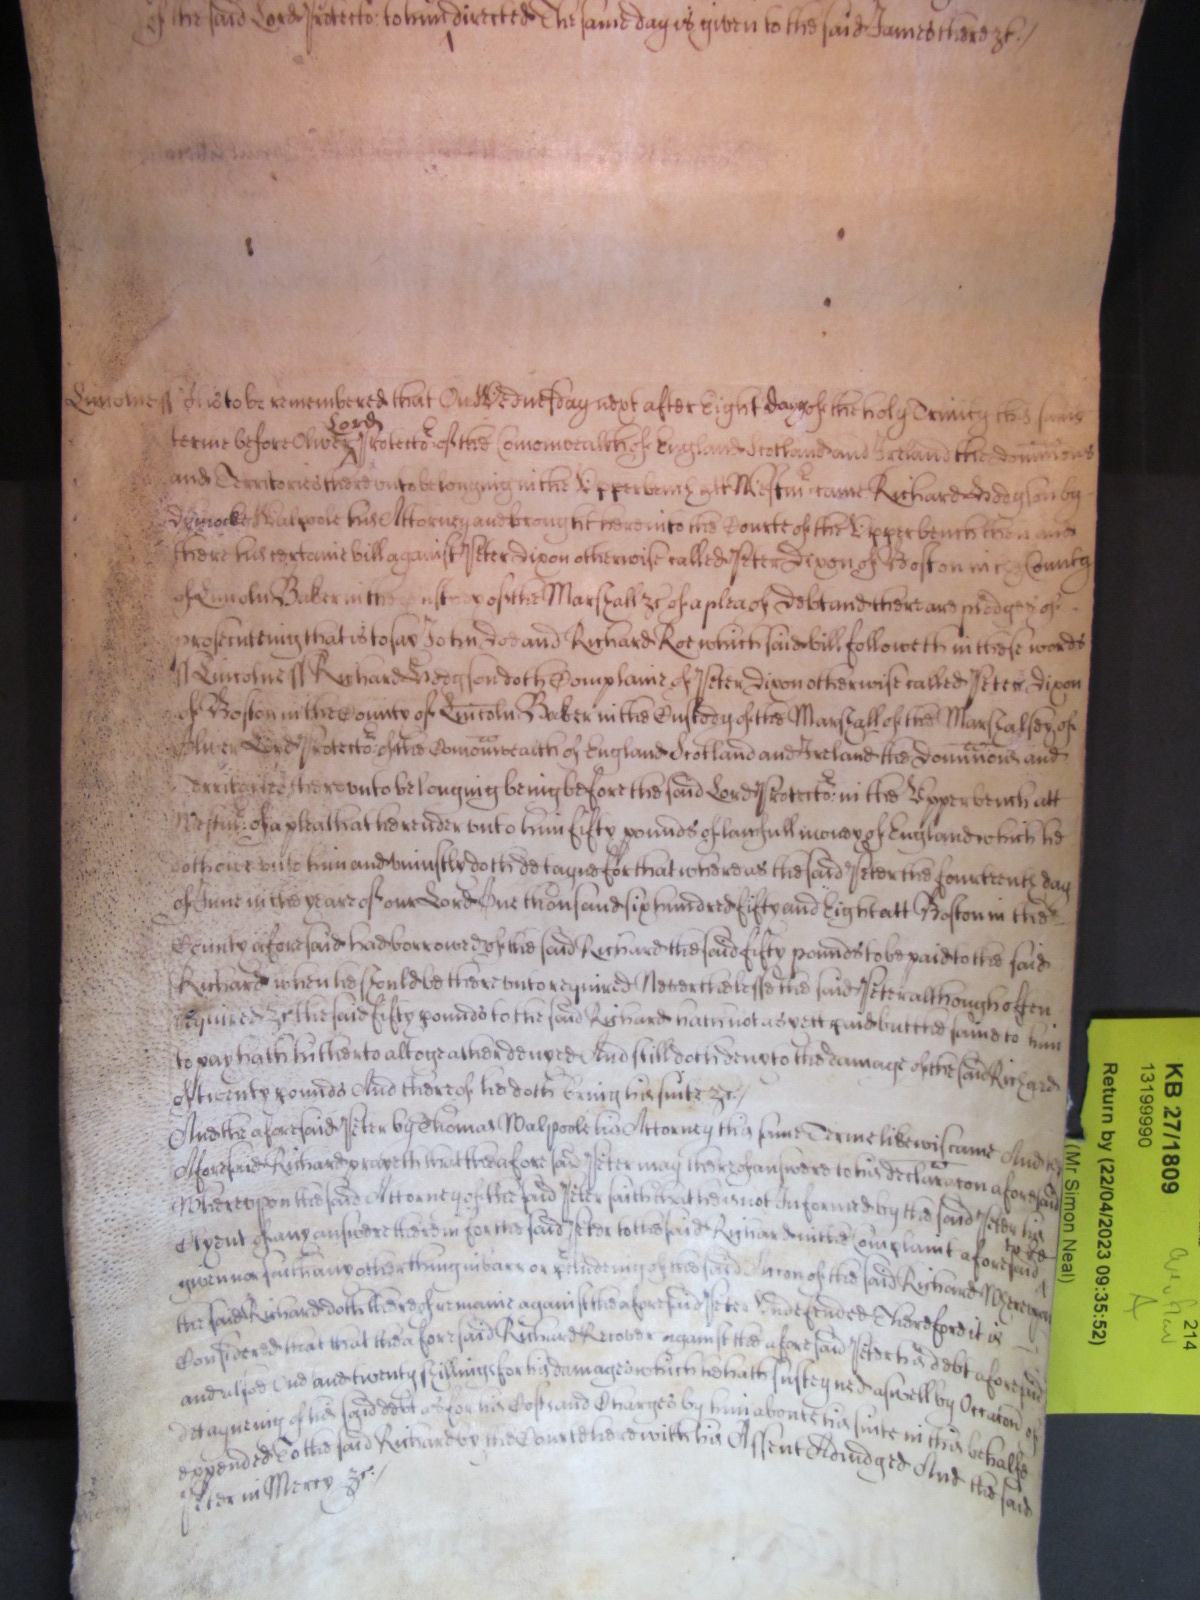 of the said Lord Protector to him directed The same day is given to the said James there &c./
Lincolne ss It is to be remembered that On Wednesday next after Eight dayes of the holy Trinity this same
terme before Oliver Lord Protector of the Comonwealth of England Scotland and Ireland the Dominions
and Territories thereunto belonging in the Upper bench att Westmr: came Richard Hodgson by
Dymocke Walpole his Attorney and brought here into the Courte of the Upper bench then and
there his certaine bill against Peter Dixon otherwise called Peter Dixon of Boston in the County
of Lincoln Baker in the Custody of the Marshall &c of a plea of Debt and there are pledges of
prosecuteing that is to say John Doe and Richard Roe which said bill followeth in these words
ss Lincolne ss Richard Hodgson doth Complaine of Peter Dixon otherwise called Peter Dixon
of Boston in the County of Lincoln Baker in the Custody of the Marshall of the Marshalsey of
Oliver Lord Protector of the Comonwealth of England Scotland and Ireland the Dominions and
Territories thereunto belonging being before the said Lord Protector in the Upper bench att
Westmr: of a plea that he render unto him fifty pounds of lawfull money of England which he
doth owe unto him and uniustly doth detayne for that whereas the said Peter the fourteenth day
of June in the yeare of our Lord One thousand six hundred fifty and Eight att Boston in the
County aforesaid had borrowed of the said Richard the said fifty pounds to be paid to the said
Richard when he should be thereunto required Neverthelesse the said Peter although often
required &c the said fifty pounds to the said Richard hath not as yett paid but the same to him
to pay hath hitherto altogeather denyed And still doth deny to the damage of the said Richard
of twenty pounds And thereof he doth bring his suite &c./
And the aforesaid Peter by Thomas Walpole his Attorney this same Terme likewise came And the
Aforesaid Richard prayeth that the aforesaid Peter may thereof answere to his declaracon aforesaid
Whereupon the said Attorney of the said Peter saith that he is not Informed by the said Peter his
Clyent of any answere therein for the said Peter to the said Richard in the Complaint aforesaid to be
given nor saith any other thing in barr or precludeing of the said Accon of the said Richard Whereupon
the said Richard doth thereof remaine against the aforesaid Peter Undefended Therefore it is
Considered that that the aforesaid Richard Recover against the aforesaid Peter his debt aforesaid
and alsoe One and twenty shillings for his damages which he hath susteyned aswell by Occasion of
detayneing of his said debt as for his Costs and Charges by him aboute his suite in this behalfe
expended To the said Richard by the Courte here with his Assent Adiudged And the said
Peter in Mercy &c./
KB 27/1809
13199990
Return by (22/04/2023 09:35:52)
(Mr Simon Neal)
214
A